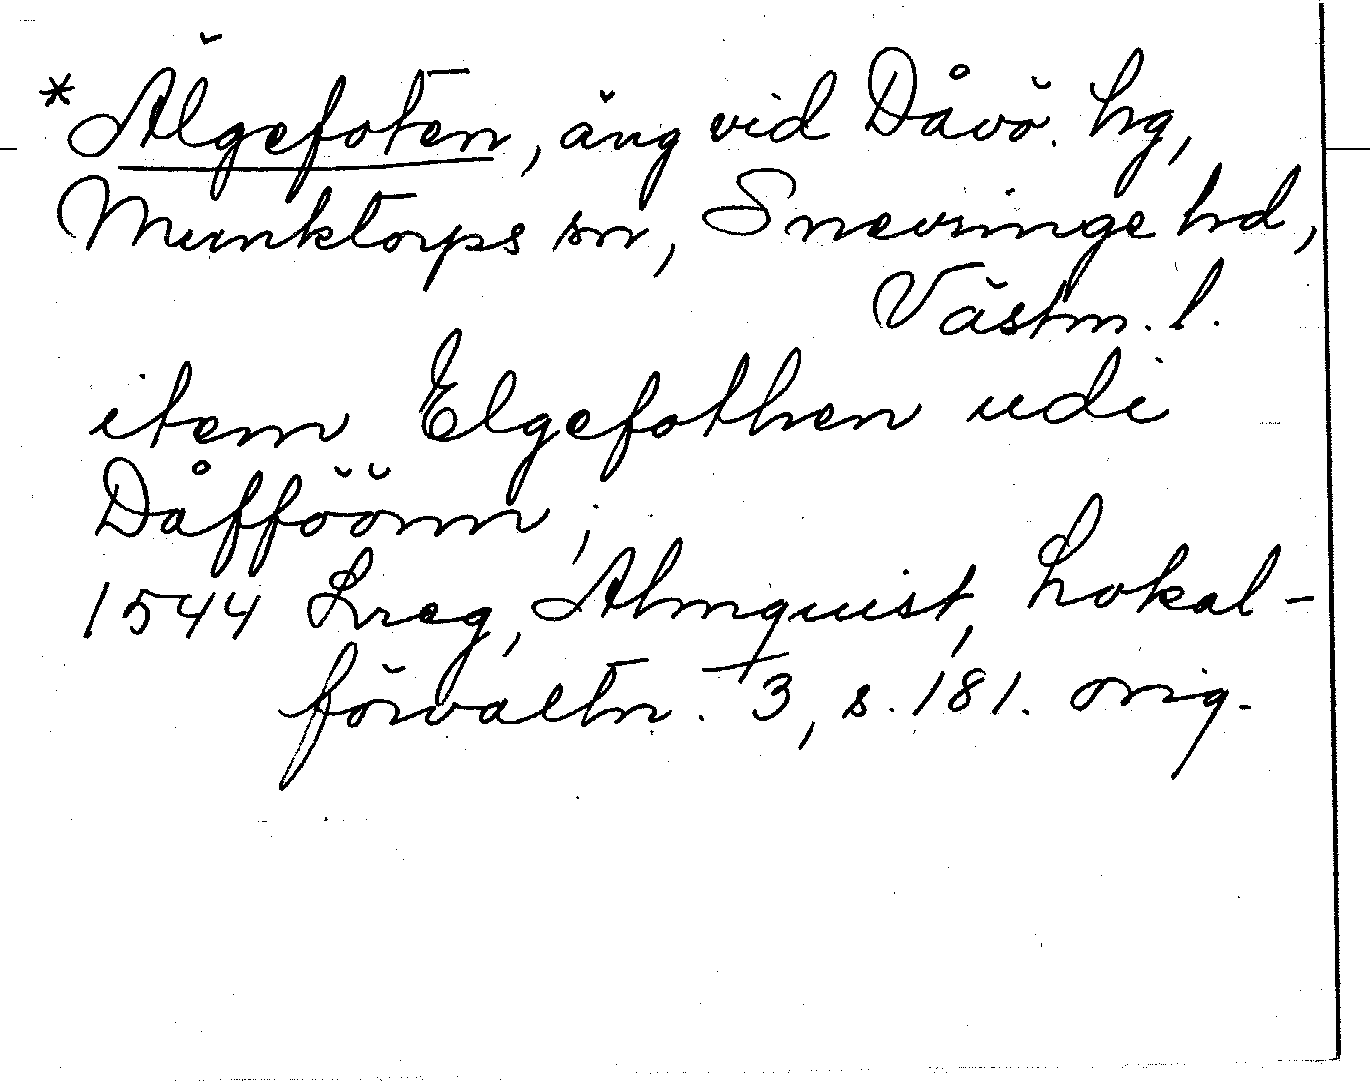 *Älgefoten, äng vid Dåvö. hg,
Munktorps sn, Snevringe hd,
Västm. l.
item Elgefothen udi
Dåfföönn;
1544 Lreg, Almquist, Lokal-
förvaltn. 3, s. 181. orig.